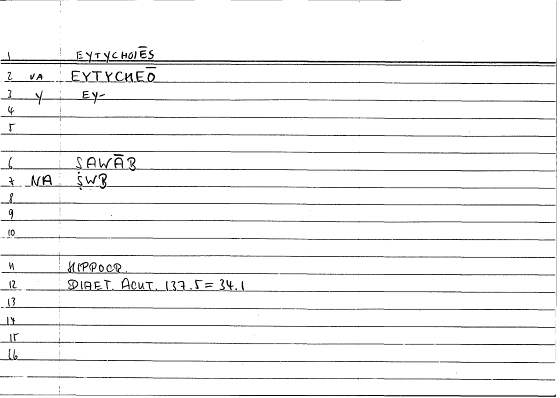 1 EYTYCHOIĒS
2 VA EYTYCHEŌ
3 Y EY-
4
5
6 SAWĀB
7 NA ṢWB
8
9
10
11 HIPPOCR.
12 DIAET. ACUT. 137.5 = 34.1
13
14
15
16